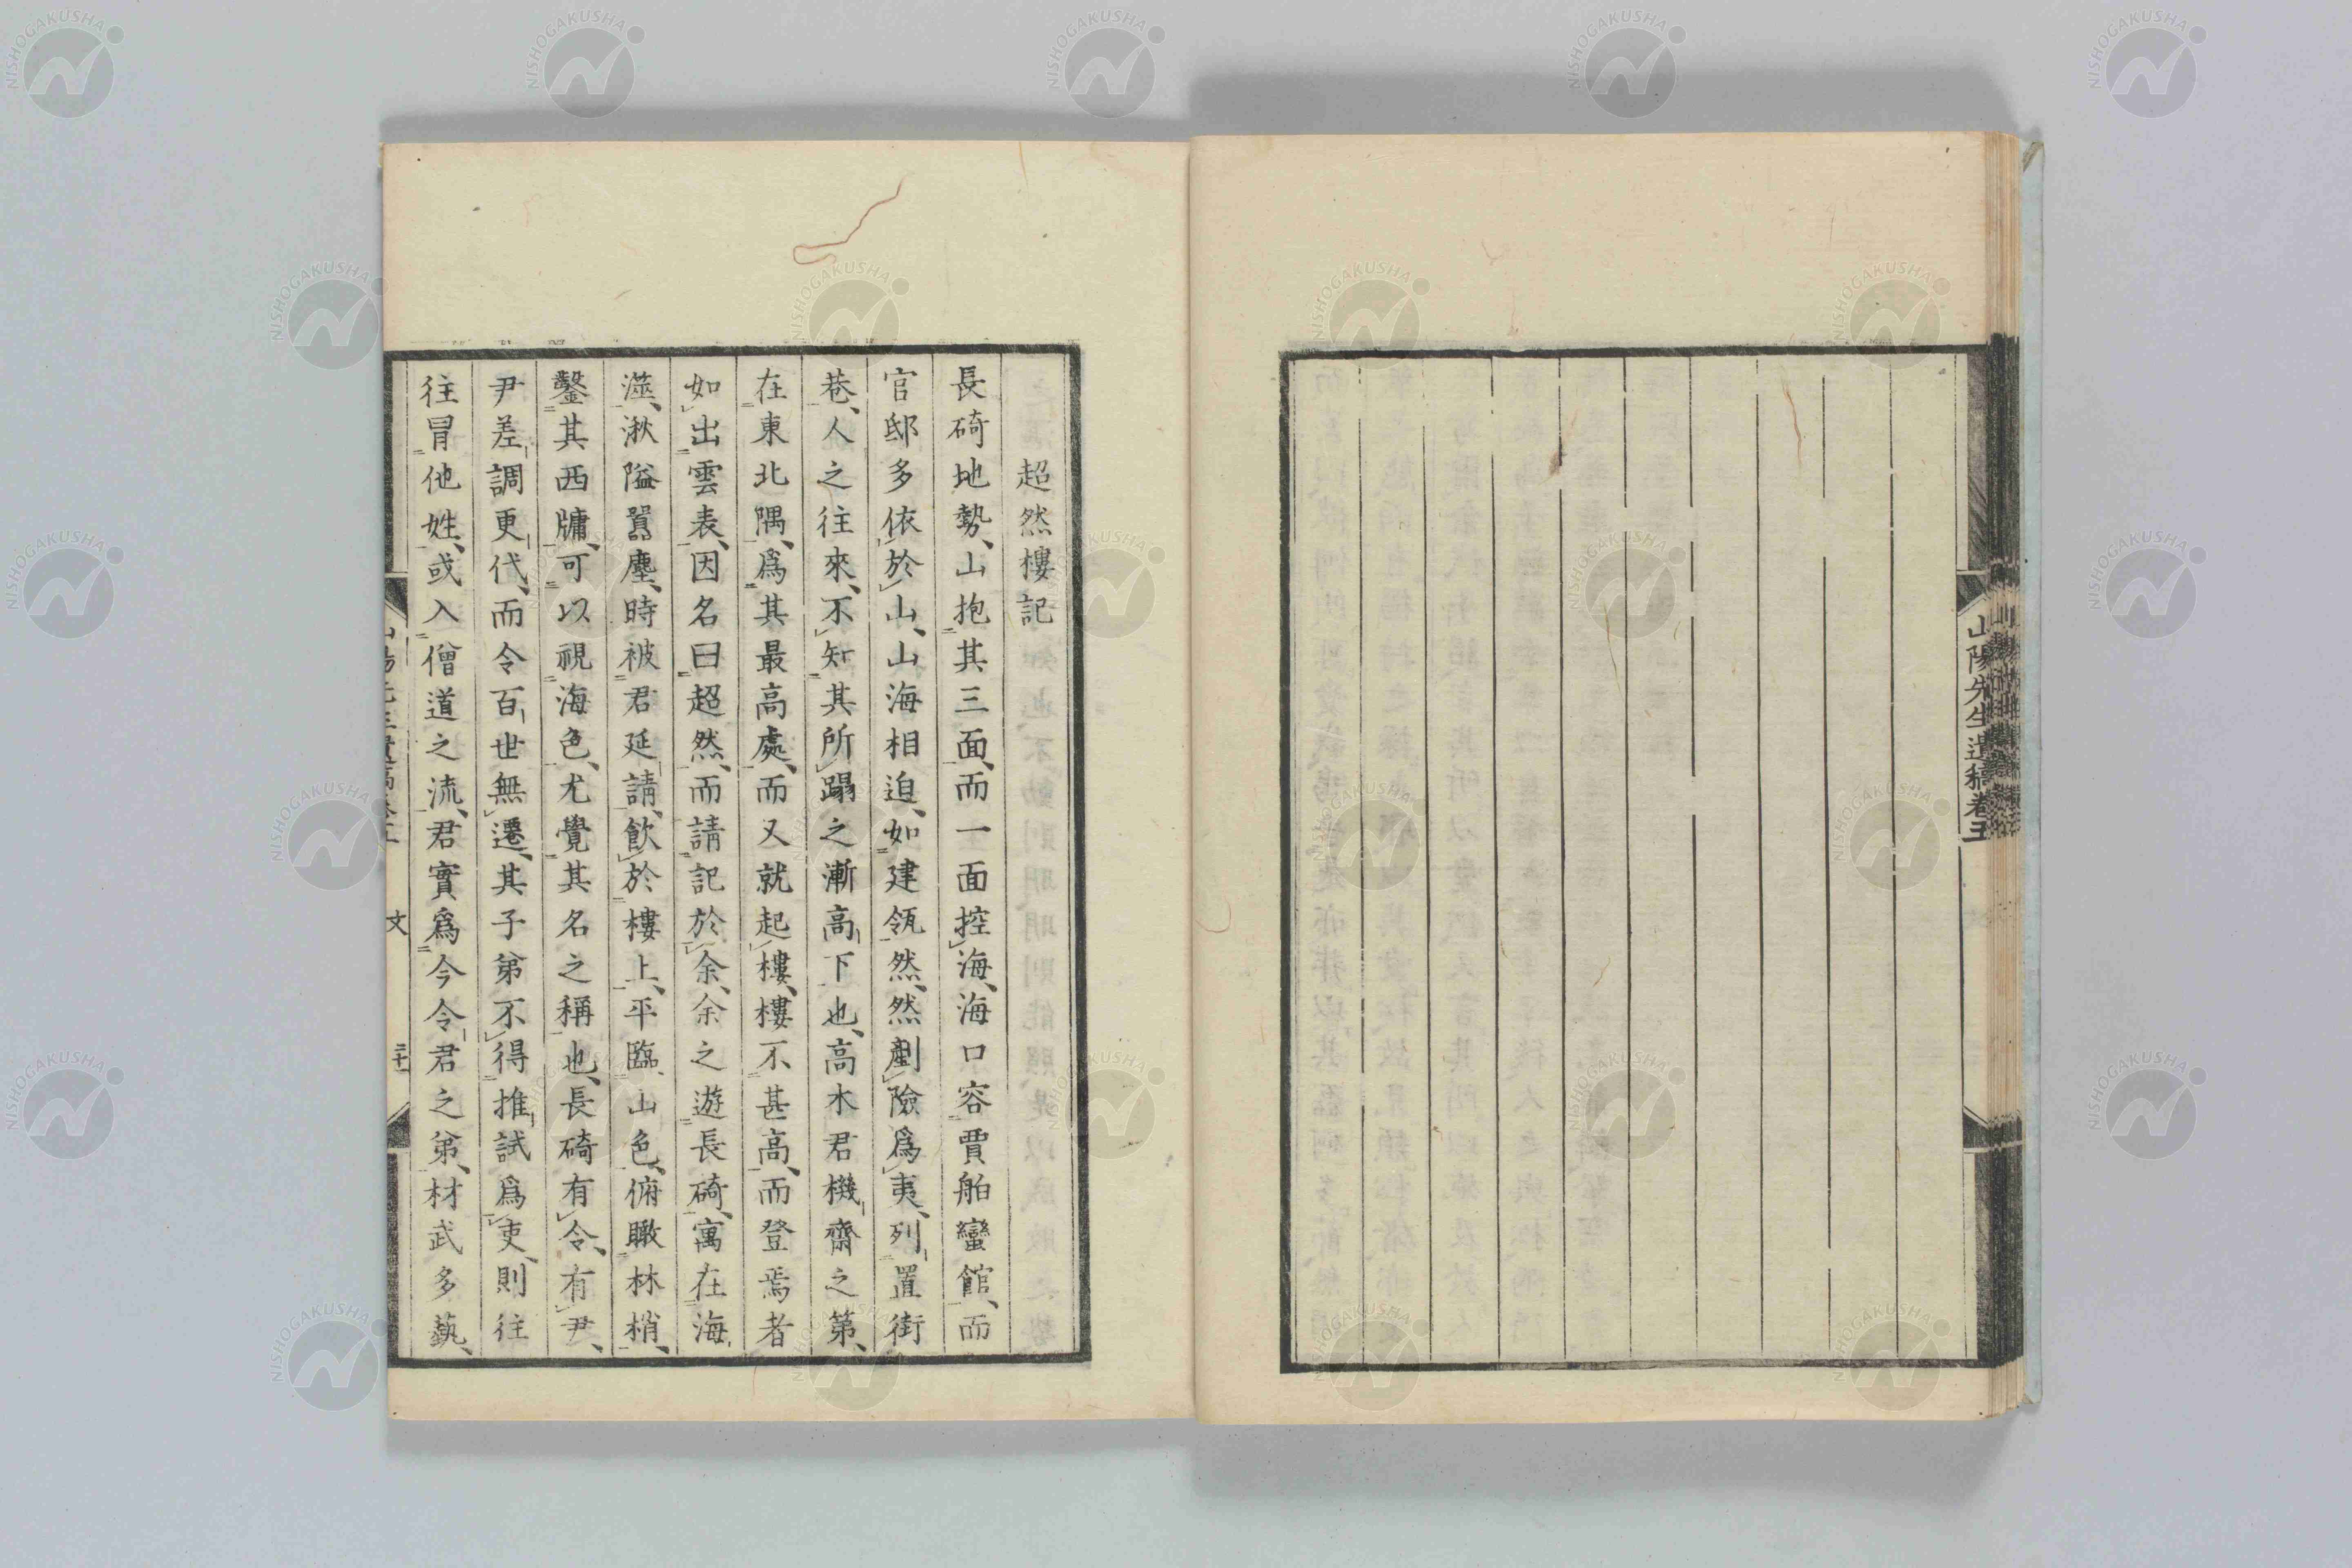 山陽先生遺稿卷五
超然樓記
長碕地勢、山抱其三面、而一面控海、海口容賈舶蠻館、而
官邸多依於山、山海相迫、如建瓴然、然剷險爲夷、列置街
巷、人之往來、不知其所躡之漸高下也、高木君機齋之第、
在東北隅、爲其最高處、而又就起樓、樓不甚高、而登焉者
如出雲表、因名曰超然、而請記於余、余之遊長碕、寓在海
澨、湫隘囂塵、時被君延請、飲於樓上、平臨山色、俯瞰林梢、
鑿其西牗、可以視海色、尤覺其名之稱也、長碕有令、有尹、
尹差調更代、而令百世無遷、其子弟不得推試爲吏、則往
往冒他姓、或入僧道之流、君實爲今令君之弟、材武多藝、
文
二十一
NISHOGAKUSHA